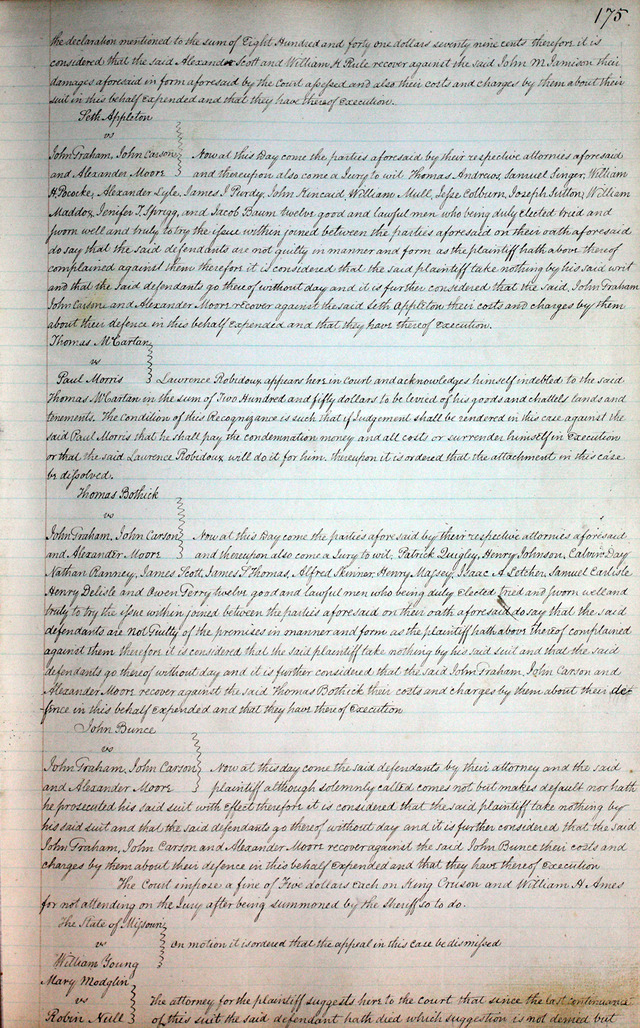 175
the declaration mentioned to the sum of Eight Hundred and forty one dollars seventy nine cents therefore it is
considered that the said Alexander Scott and William H Rule recover against the said John M Jamison their
damages aforesaid in form aforesaid by the Court assessed and also their costs and charges by them about their
suit in this behalf Expended and that they have thereof Execution.
Seth Appleton
vs
John Graham, John Carson Now at this Day come the parties aforesaid by their respective attornies aforesaid
and Alexander Moore and thereupon also come a Jury to wit Thomas Andrews, Samuel Singer, William
H. Pococke, Alexander Lyle, James J Purdy, John Kincaid, William Mull, Jesse Colburn, Joseph Sutton, William
Maddox, Jenifer T. Sprigg, and Jacob Baum twelve good and lawful men who being duly elected tried and
sworn well and truly to try the issue within joined between the parties aforesaid on their oath aforesaid
do say that the said defendants are not guilty in manner and form as the plaintiff hath above thereof
complained against them therefore it is considered that the said plaintiff take nothing by his said writ
and that the said defendants go thereof without day and it is further considered that the said John Graham
John Carson and Alexander Moore recover against the said Seth Appleton their costs and charges by them
about their defence in this behalf Expended and that they have thereof Execution.
Thomas McCartan
vs
Paul Morris Lawrence Robidoux appears here in court and acknowledges himself indebted to the said
Thomas McCartan in the sum of Two Hundred and fifty dollars to be levied of his goods and chattels lands and
tenements. The Condition of this Recognizance is such that if Judgement shall be rendered in this case against the
said Paul Morris that he shall pay the condemnation money and all costs or surrender himself in Execution
or that the said Laurence Robidoux will do it for him. thereupon it is ordered that the attachment in this case
be dissolved.
Thomas Bothick
vs
John Graham, John Carson Now at this Day come the parties aforesaid by their respective attornies aforesaid
and Alexander Moore and thereupon also come a Jury to wit; Patrick Quigley, Henry Johnson, Calvin Day
Nathan Ranney, James Scott, James S Thomas, Alfred Skinner, Henry Massey, Isaac A Letcher, Samuel Carlisle
Henry Delisle and Owen Perry twelve good and lawful men who being duly Elected tried and sworn well and
truly to try the issue within joined between the parties aforesaid on their oath aforesaid do say that the said
defendants are Not Guilty of the premises in manner and form as the plaintiff hath above thereof complained
against them therefore it is considered that the said plaintiff take nothing by his said suit and that the said
defendants go thereof without day and it is further considered that the said John Graham, John Carson and
Alexander Moore recover against the said Thomas Bothick their costs and charges by them about their de=
fence in this behalf Expended and that they have thereof Execution
John Bunce
vs
John Graham, John Carson Now at this day come the said defendants by their attorney and the said
and Alexander Moore plaintiff although solemnly called comes not but makes default nor hath
he prosecuted his said suit with Effect therefore it is considered that the said plaintiff take nothing by
his said suit and that the said defendants go thereof without day and it is further considered that the said
John Graham, John Carson and Alexander Moore recover against the said John Bunce their costs and
charges by them about their defence in this behalf Expended and that they have thereof Execution
The Court impose a fine of Two dollars each on King Cruson and William H Ames
for not attending on the Jury after being summoned by the Sheriff so to do.
The State of Missouri
vs on motion it is ordered that the appeal in this case be dismissed
William Young
Mary Modglin
vs the attorney for the plaintiff suggests here to the court that since the last continuance
Robin Null of this suit the said defendant hath died which suggestion is not denied but